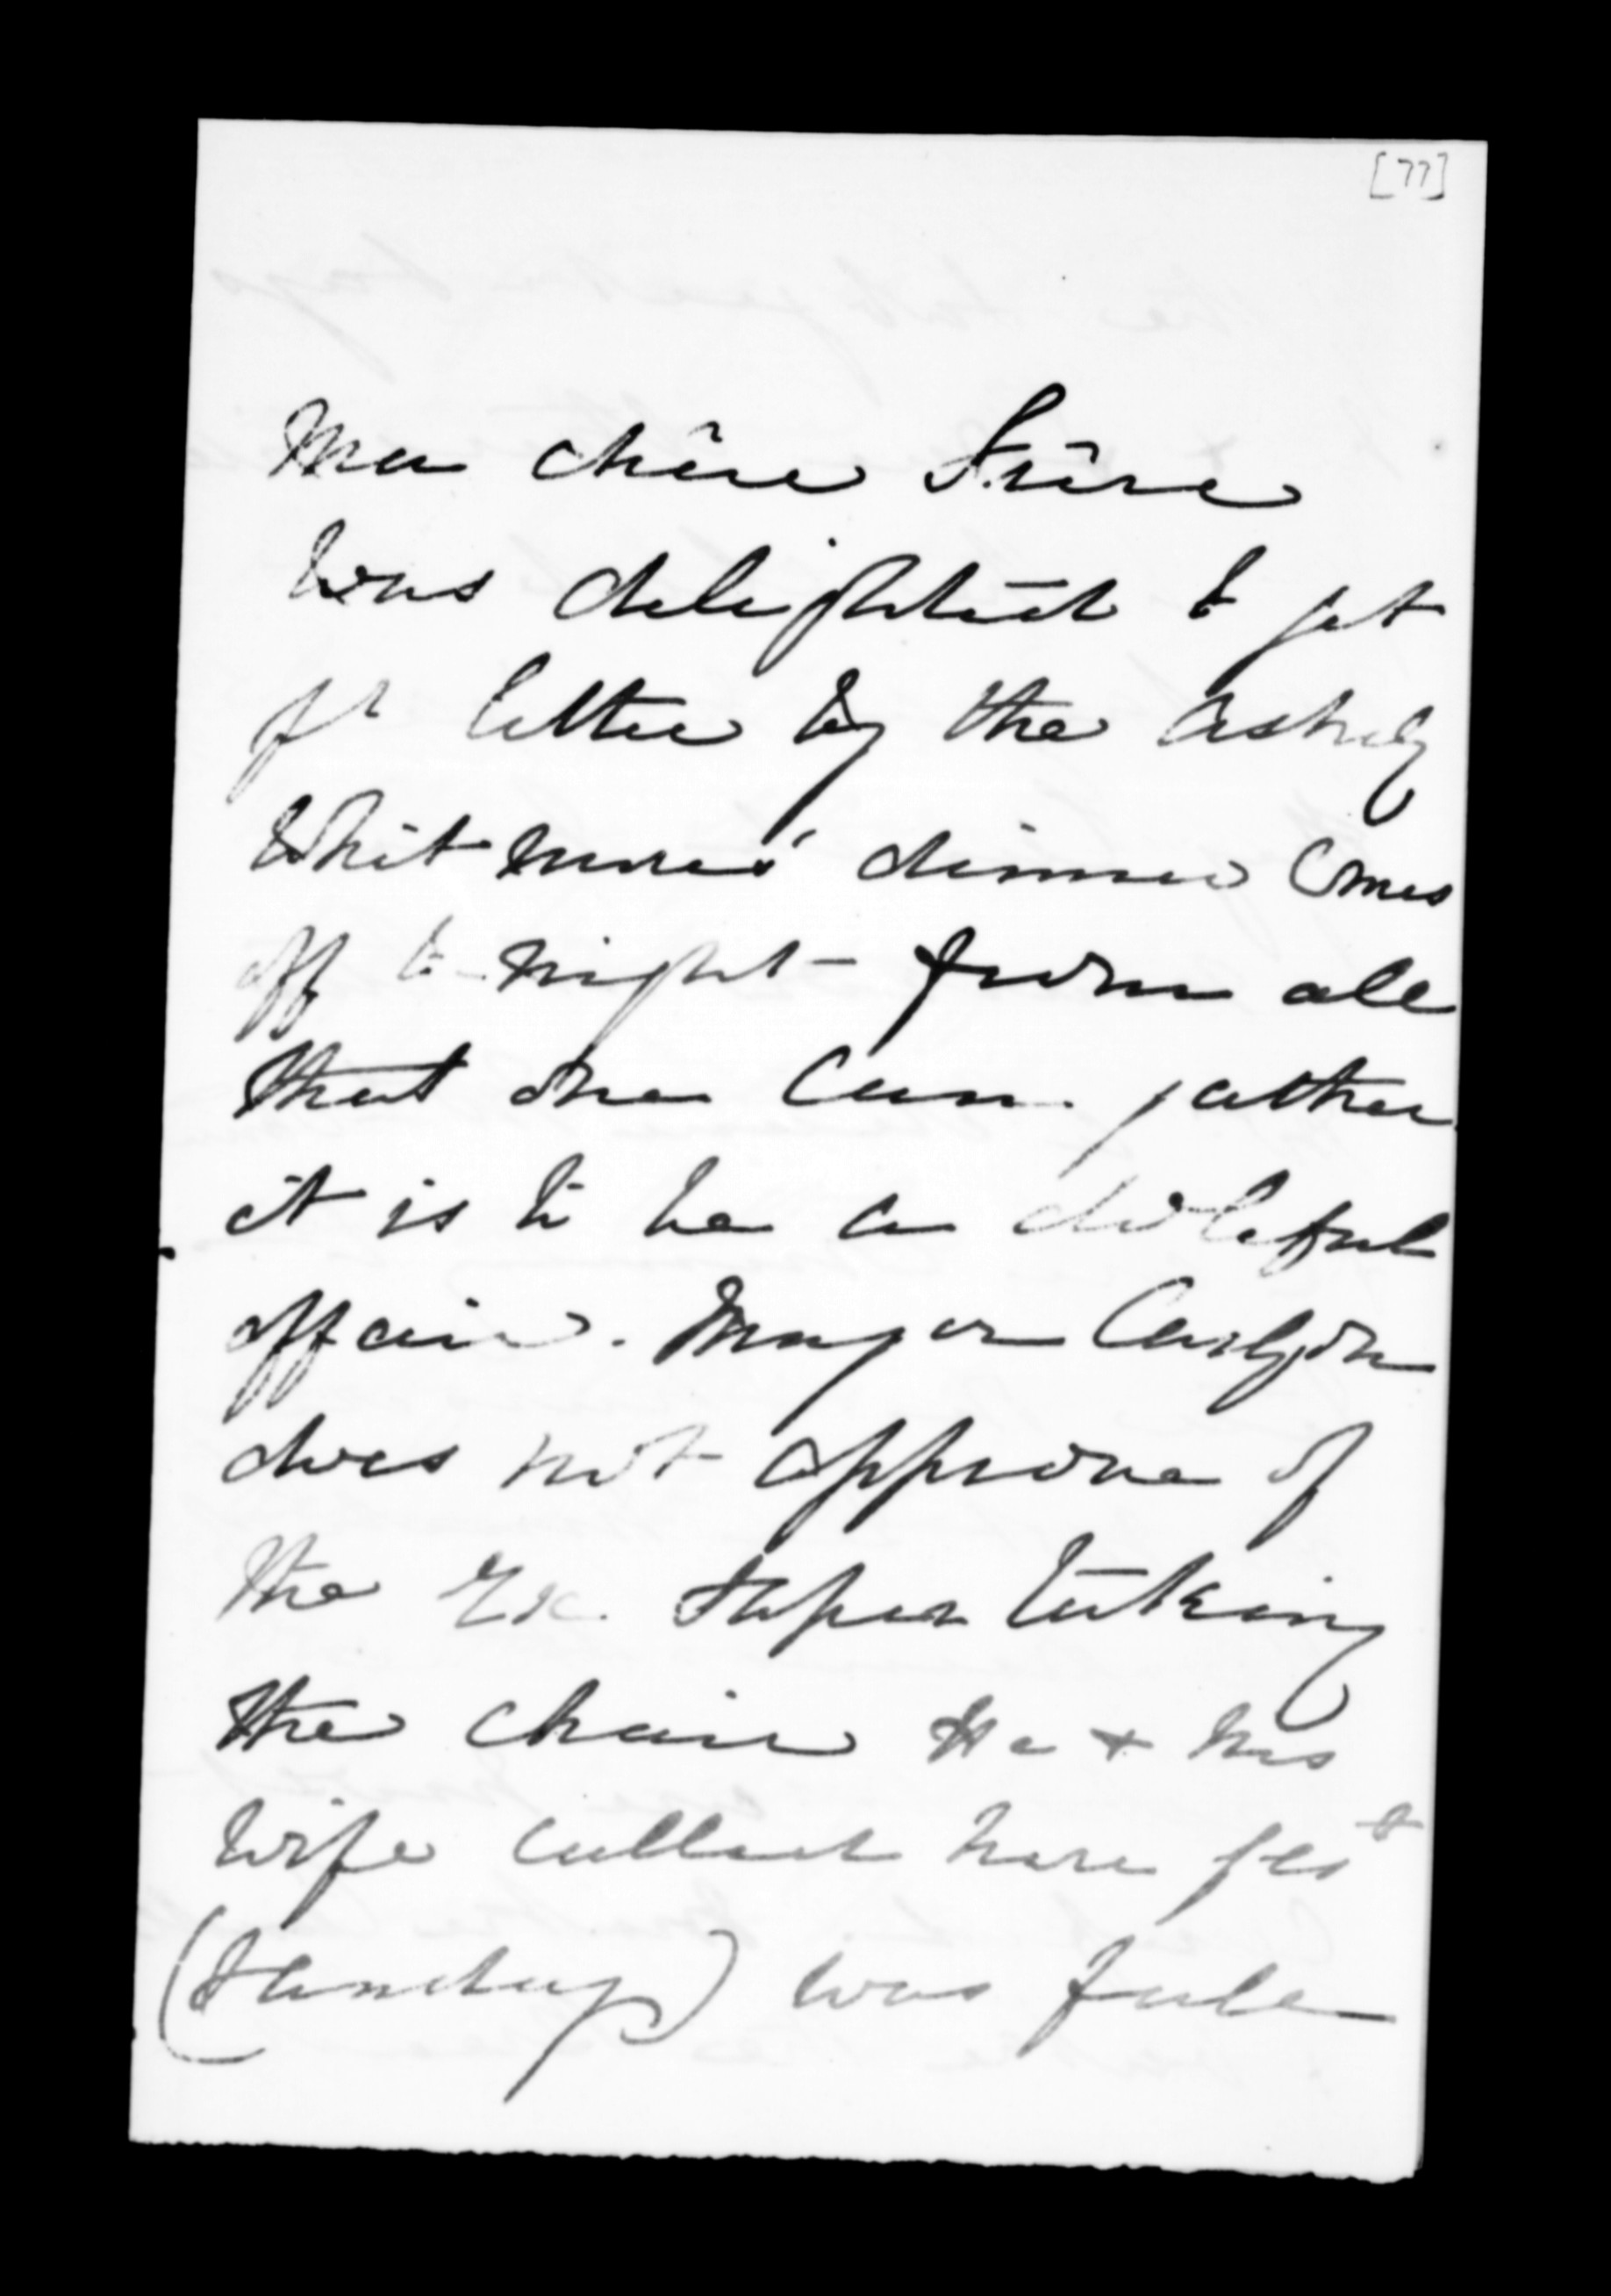 [77]
Ma chère Frère
Was delighted to get
yr letter by the Ashley
Whitmores' dinner Comes
off to-night - from all
that one Can gather
it is to be a doleful
affair. Major Carlyon
does not approve of
the Ex. Super taking
the chair He & his
wife called here yest
(Sunday) was full